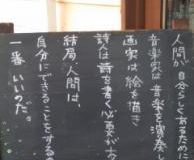 人間が自分らしくあるため
音楽家は音楽を演奏し
画家は絵を描き
詩人は詩を書く必要があ
結局、人間は、
自分にできることをするの
一番いいのだ。